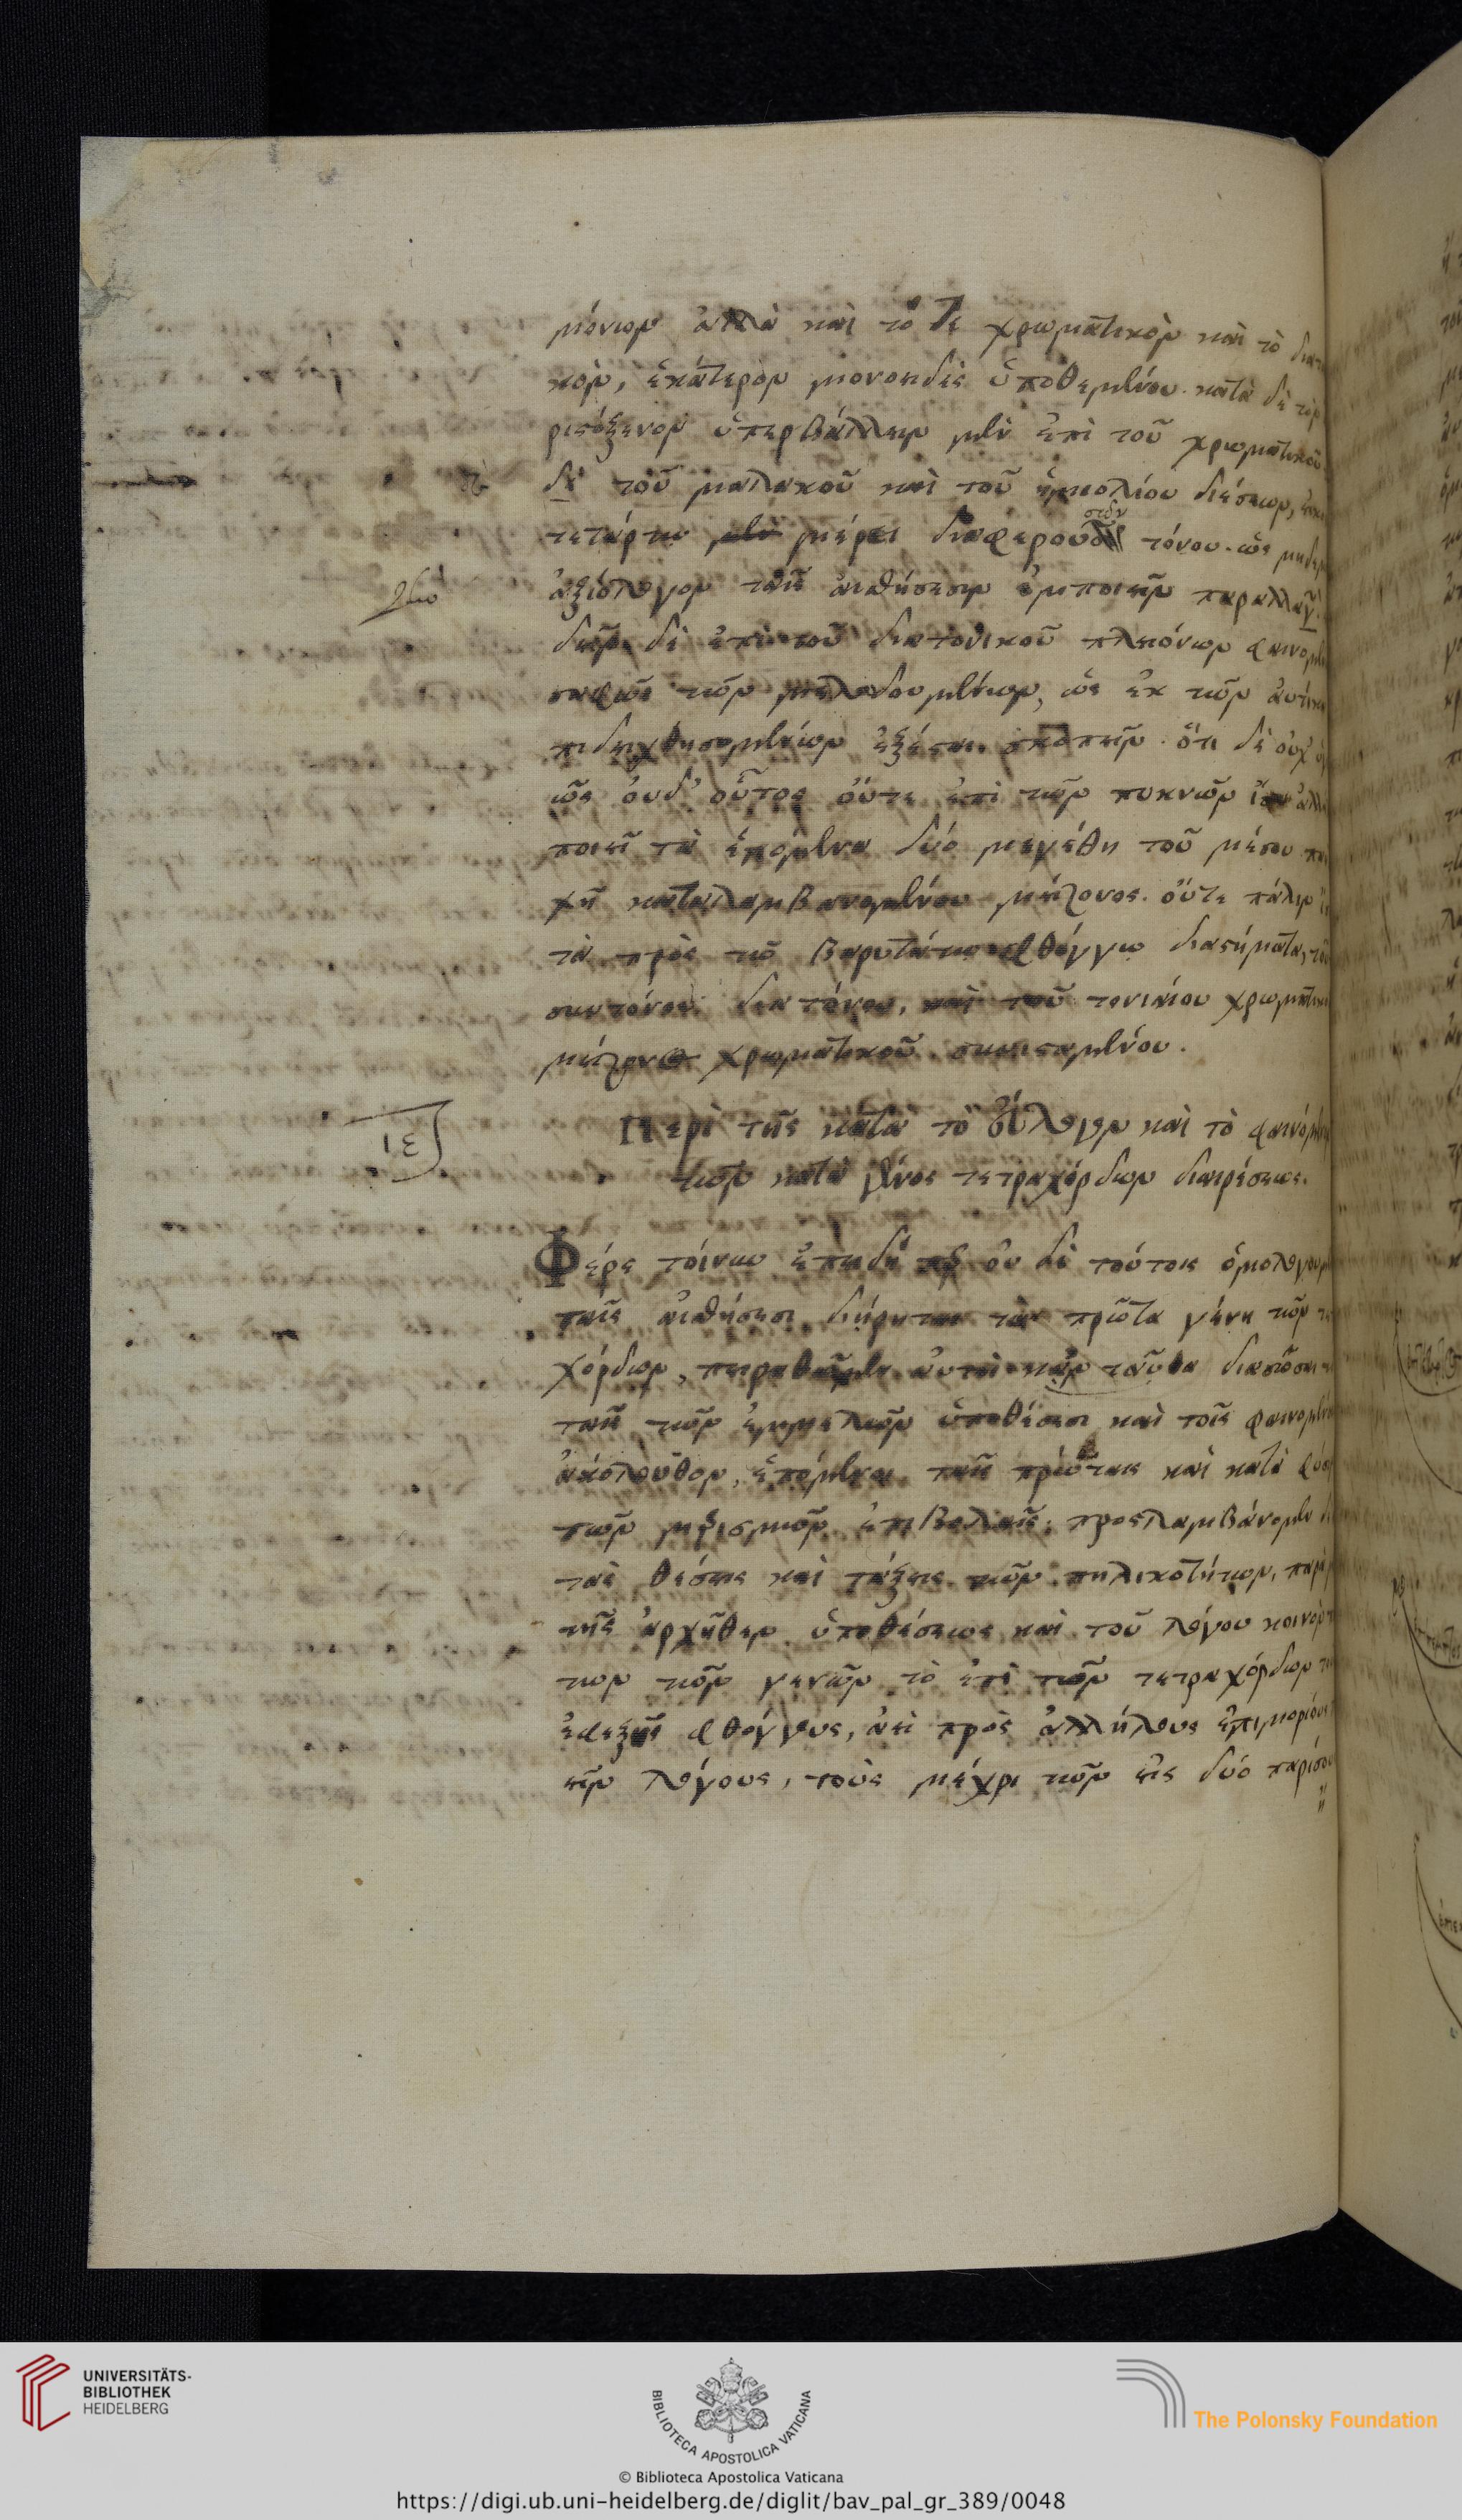 μόνιον ἀλλὰ καὶ τό τε χρωματικὸν καὶ τὸ διατ
κὸν, ἑκάτερον μονοειδὲς ὑποθεμένου. κατὰ δὲ τὸν
ριστόξενον ὑπερβάλλειν μὲν ἐπὶ τοῦ χρωματικοῦ
δὲ τοῦ μαλακοῦ καὶ τοῦ ἡμιολίου διέσεων,
τετάρτω μέρει διαφερουσῶν τόνου. ὡς μηδεμ
ἀξιόλογον ταῖς αἰσθήσεσιν ἐμποιεῖν παραλλαγ
δεῖν δὲ ἐπὶ τοῦ διατονικοῦ πλειόνων φαινομέ
σαφῶς τῶν μελωδουμένων, ὡς ἐκ τῶν αὐτίκα
πιδειχθησομένων ἐξέσται σκοπεῖν. ὅτι δὲ οὐχ
ῶς οὐδ' οὗτος οὔτε ἐπὶ τῶν πυκνῶν ἴσα ἀλλ
ποιεῖ τὰ ἑπόμενα δύο μεγέθη τοῦ μέσου
χῆ καταλαμβανομένου μείζονος. οὔτε πάλιν
τὰ πρὸς τῶ βαρυτάτω φθόγγω διαστήματα, τοῦ
συντόνου διατόνου, καὶ τοῦ τονιαίου χρωματικ
μείζονος χρωματικοῦ συνισταμένου.
ιε
Περὶ τῆς κατὰ τὸ εὔλογον καὶ τὸ φαινόμεν
τῶν κατὰ γένος τετραχόρδων διαιρέσεως.
Φέρε τοίνυν ἐπειδὴ οὐδὲ τούτοις ὁμολογουμ
ταῖς αἰσθήσεσι διήρηται τὰ πρῶτα γένη τῶν τε
χόρδων, πειραθῶμεν αὐτοὶ κἀνταῦθα διασῶσαι
ταῖς τῶν ἐμμελειῶν ὑποθέσεσι καὶ τοῖς φαινομένο
ἀκόλουθον, ἑπόμενοι ταῖς πρώταις καὶ κατὰ φύσ
τῶν μερισμῶν ἐπιβολαῖς. προσλαμβάνομεν
τὰς θέσεις καὶ τάξεις τῶν πηλικοτήτων, παρὰ
τῆς ἀρχῆθεν ὑποθέσεως καὶ τοῦ λόγου κοινὸν
των τῶν γενῶν τὸ ἐπὶ τῶν τετραχόρδων
ἐφεξῆς φθόγγους, ἀεὶ πρὸς ἀλλήλους ἐπιμορίους
εῖν λόγους, τοὺς μέχρι τῶν εἰς δύο παρίσου
UNIVERSITÄTS-
BIBLIOTHEK
HEIDELBERG
BIBLIOTECA APOSTOLICA VATICANA
The Polonsky Foundation
© Biblioteca Apostolica Vaticana
https://digi.ub.uni-heidelberg.de/diglit/bav_pal_gr_389/0048